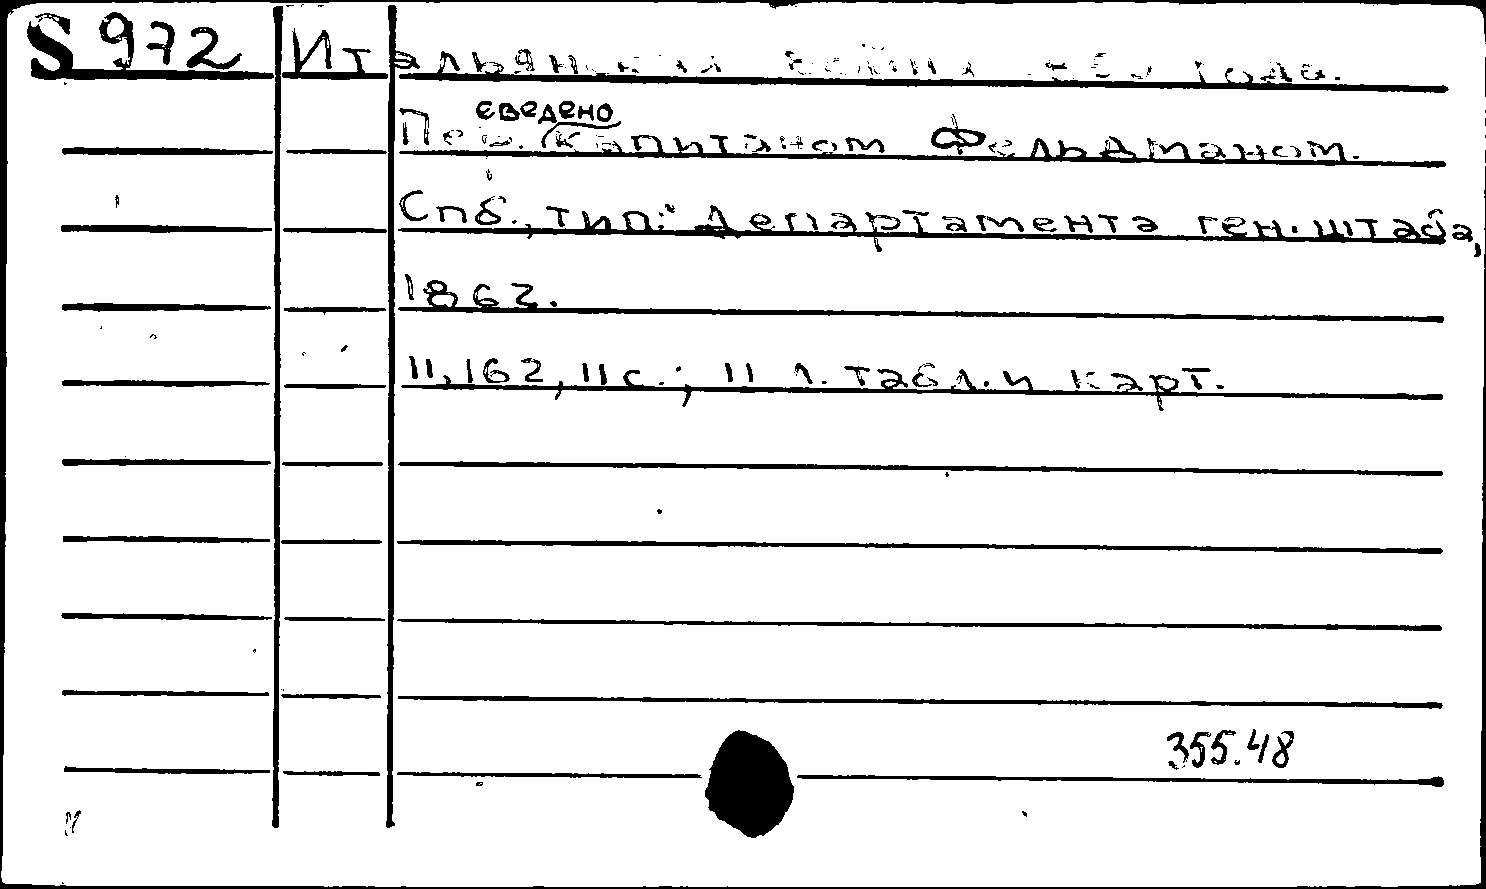 S 972 Итальянская война 1859 года.
Переведено капитаном Фельдманом.
Спб., тип. Департамента ген. штаба,
1862.
II, 162, II с.; II л. табл. и карт.
355.48